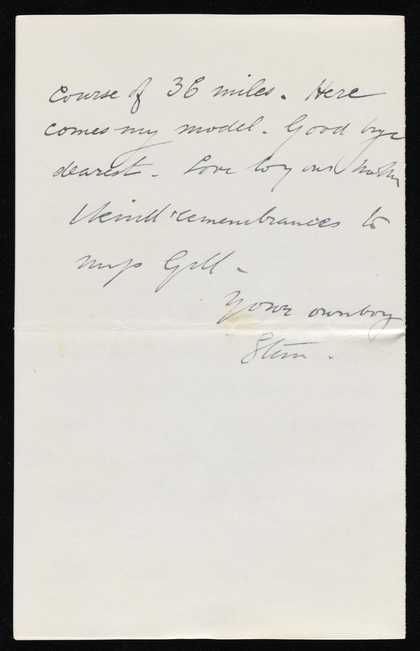 course of 36 miles. Here
comes my model. Good bye
dearest. Love to your mother
& kind remembrances to
Miss Gill.
Your own boy